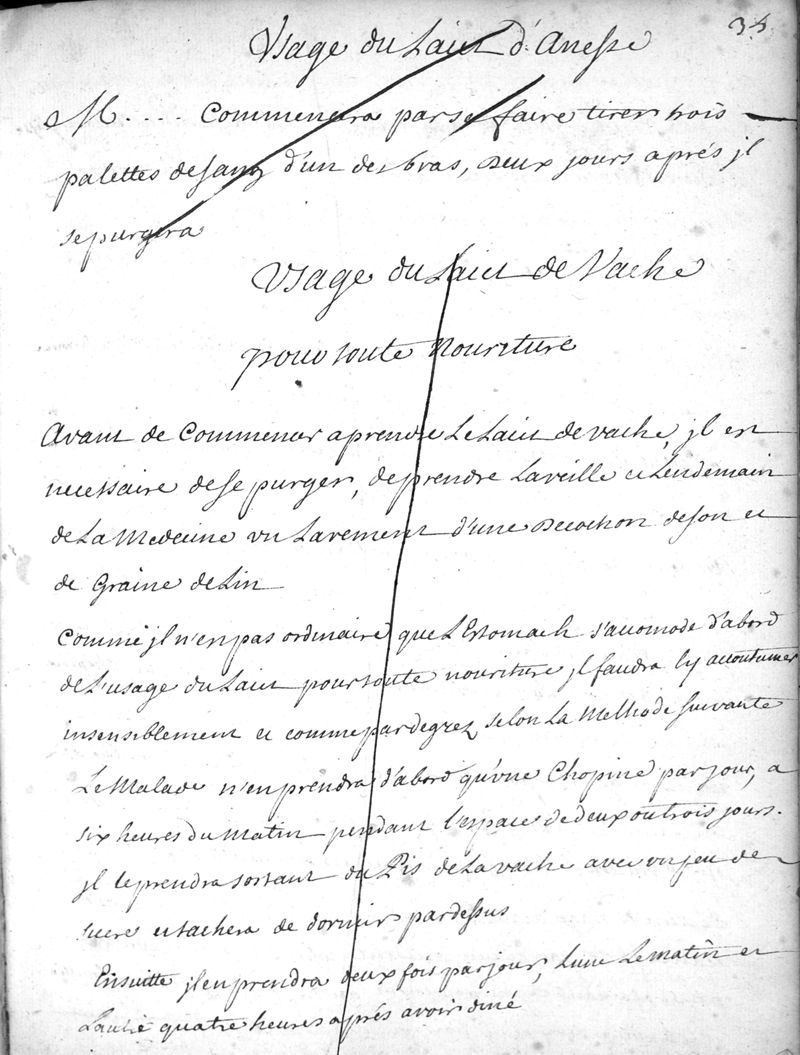 35
Usage du Lait d'Anesse
M.... Commencera par se faire tirer trois
palettes de sang d'un des bras, Deux jours aprés jl
se purgera
Usage du Lait de Vache
pour toute Nouriture
Avant de Commencer a prendre Le Lait de vache, jl est
necessaire de se purger, de prendre La veille et Lendemain
de La Medecine un Lavement d'une Decoction de son et
de Graine de Lin
Comme jl n'est pas ordinaire que L'Estomach s'acomode d'abord
de L'usage du Lait pour toute nouriture jl faudra L'y accoutumer
insensiblement et comme par degrez selon La Methode Suivante
Le Malade n'en prendra d'abord qu'une Chopine par jour, a
six heures du Matin pendant l'espace de deux ou trois jours.
jl le prendra sortant du Pis de La vache avec un peu de
sucre et tachera de dormir pardessus
Ensuitte jl en prendra deux fois par jour, L'une Le matin et
L'autre quatre heures aprés avoir diné